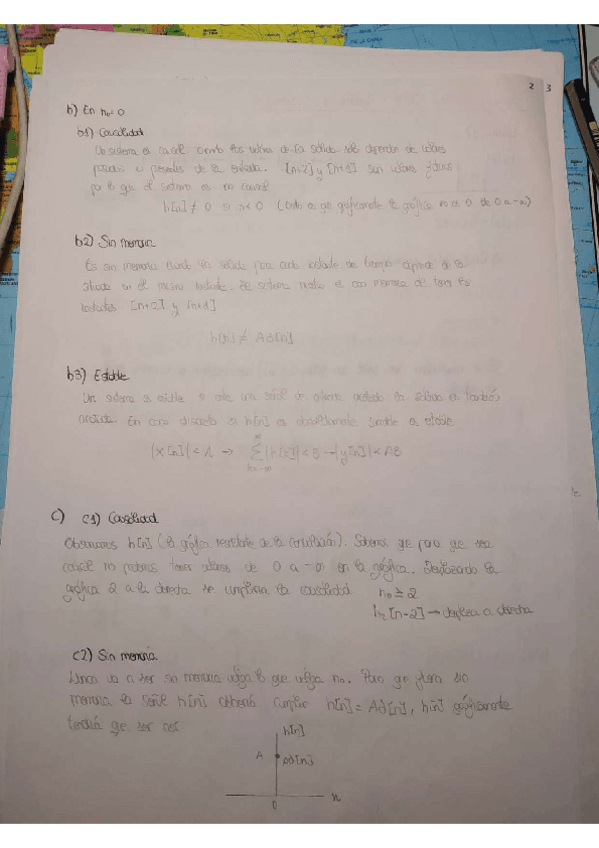 2 3
b) En n₀=0
b1) Causalidad
Un sistema es causal cuando los valores de la salida solo dependen de valores
pasados o presentes de la entrada. [n+2] y [n+1] son valores futuros
por lo que el sistema es no causal
h[n] ≠ 0 si n<0 (Cosa es que gráficamente la gráfica no es 0 de 0 a -∞)
b2) Sin memoria
Es sin memoria cuando la salida para cada instante de tiempo depende de la
entrada en el mismo instante. Se sistema es con memoria de los
instantes [n+2] y [n+1]
h[n] ≠ Aδ[n]
b3) Estable
Un sistema es estable si ante una señal de entrada acotada la salida es también
acotada. En caso discreto si h[n] es absolutamente sumable es estable
|x[n]| < A → ∑ |h[k]| < B → |y[n]| < AB
k=-∞
c) c1) Causalidad
Observamos h[n] (la gráfica resultante de la convolución). Sabemos que para que sea
causal no podemos tener valores de 0 a -∞ en la gráfica. Desplazando la
gráfica 2 a la derecha se cumpliría la causalidad n₀ ≥ 2
h[n-2] → desplaza a derecha
c2) Sin memoria
Nunca va a ser sin memoria valga lo que valga n₀. Para que fuera sin
memoria la señal h[n] debería cumplir h[n] = Aδ[n], h[n] gráficamente
tendría que ser así
h[n]
A Aδ[n]
0 n